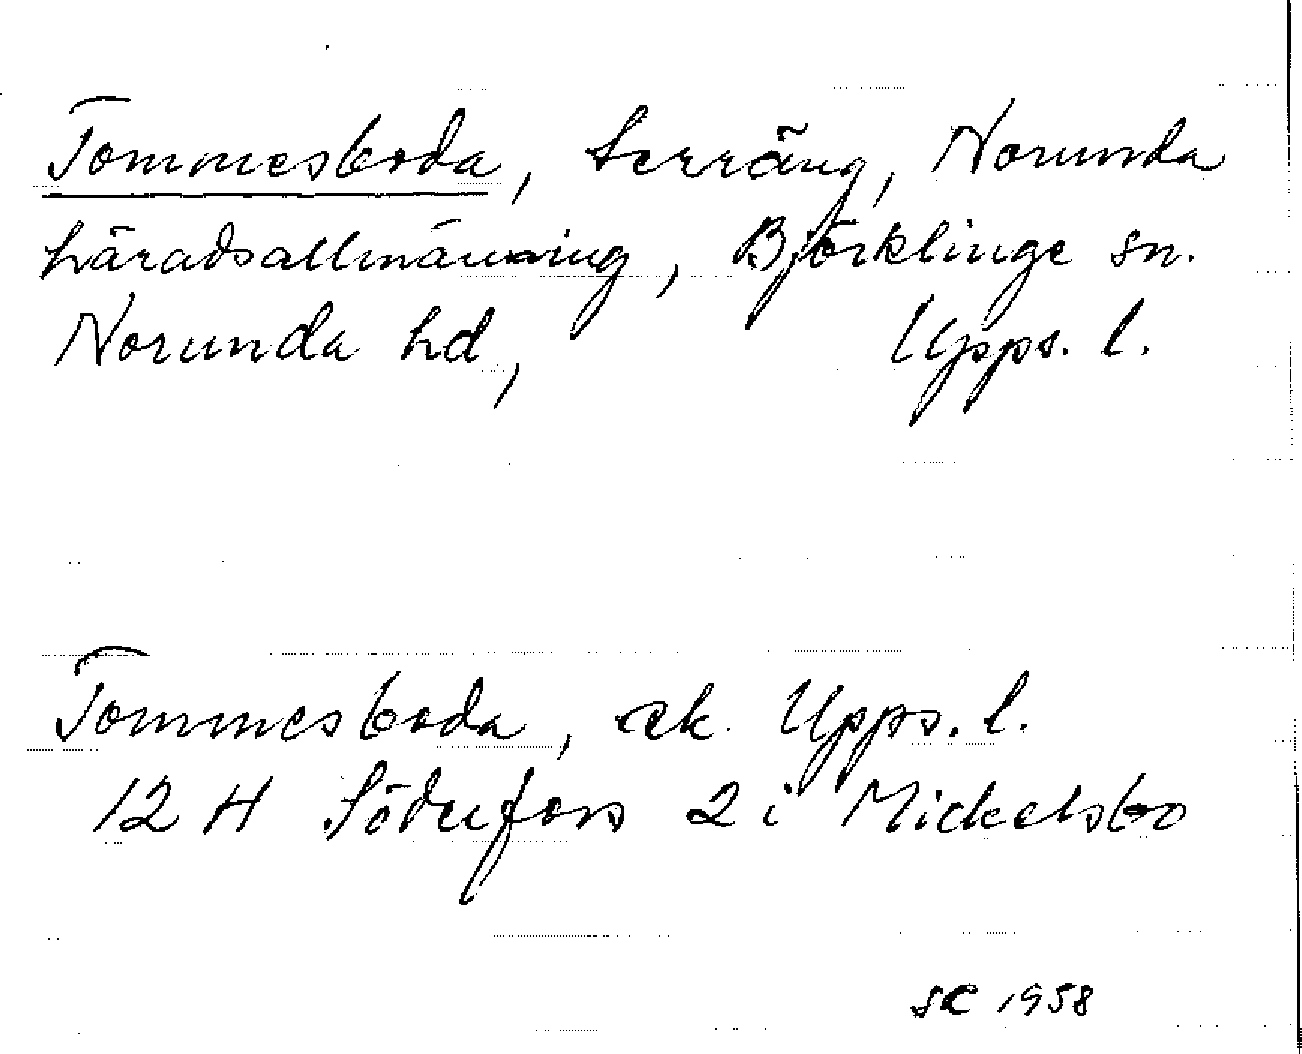 Tommesboda, terräng, Norunda
häradsallmänning, Björklinge sn.
Norunda hd, Upps. l.
Tommesboda, ek. Upps. l.
12 H Söderfors 2 i Mickelsbo
SC 1958